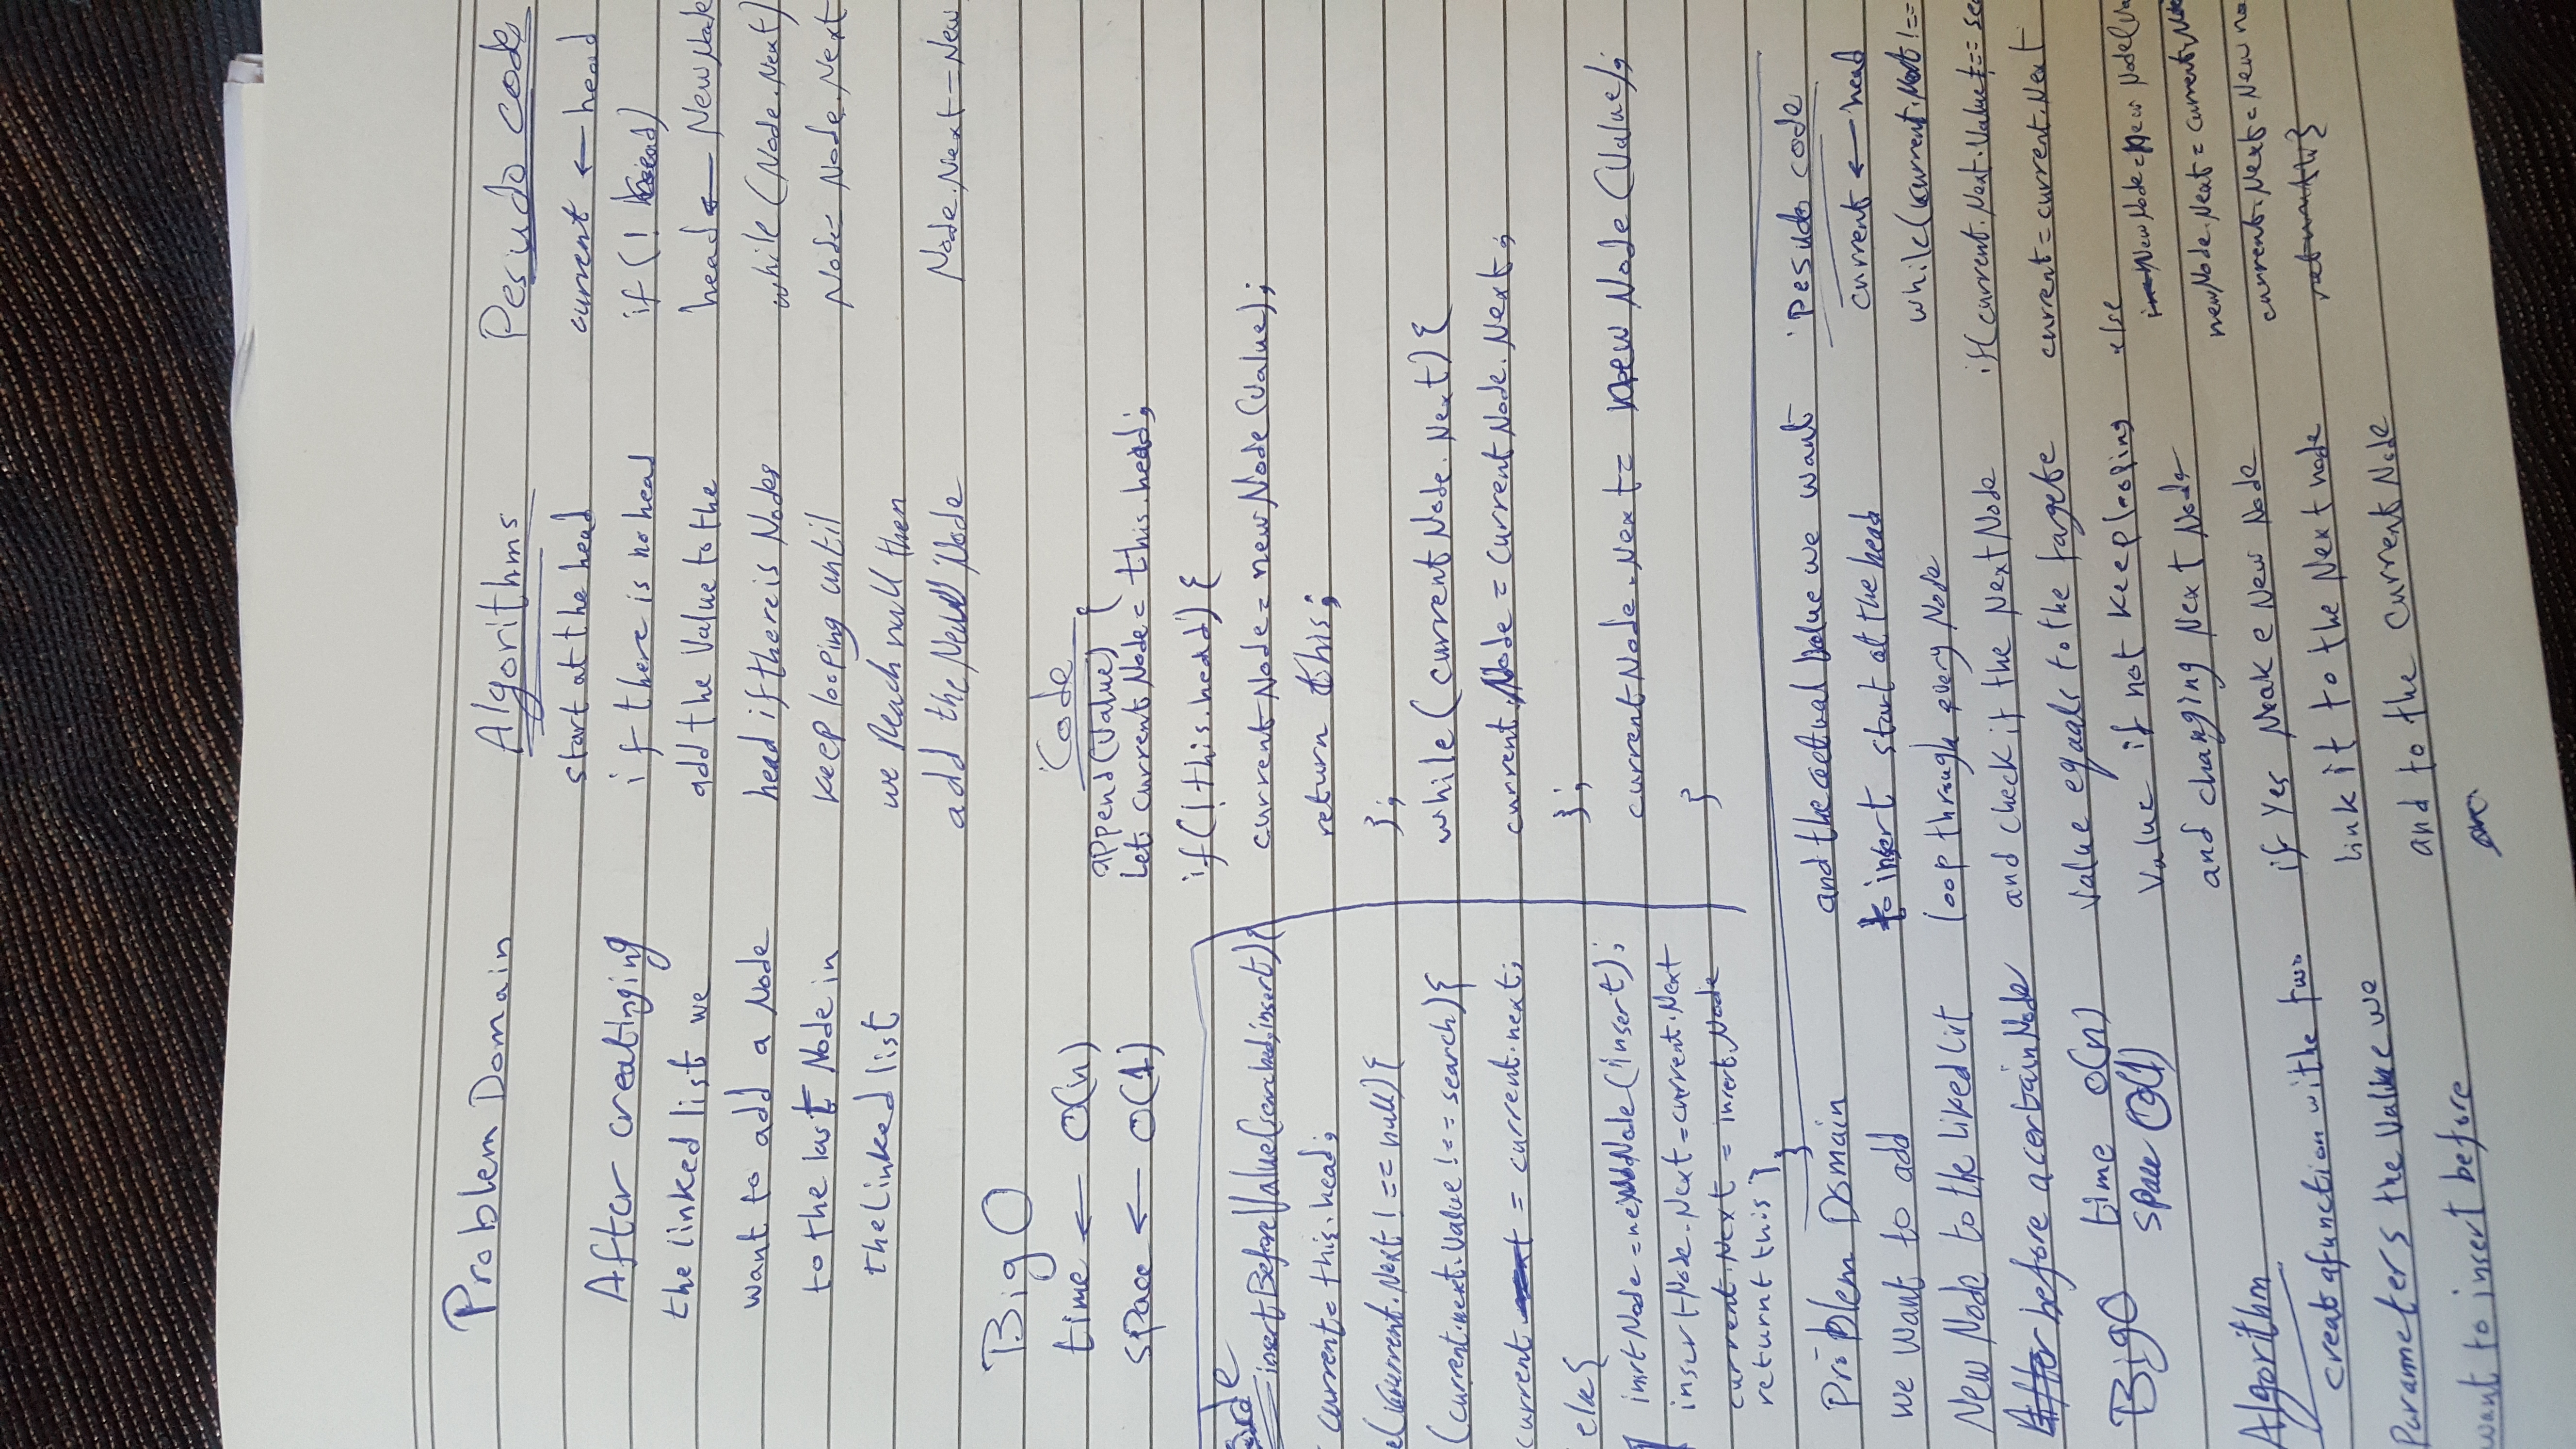 Problem Domain
After creatinging
the linked list we
want to add a Node
to the last Node in
the Linked list
Algorithms
start at the head
if there is no head
add the Value to the
head if there is Nodes
keep looping until
we Reach null then
add the New Node
Pesudo code
current ← head
if (! head)
head ← New Node
while (Node.Next)
Node = Node.Next
Node.Next = New
Big O
time ← O(n)
space ← O(1)
Code
append(Value) {
Let current Node = this.head;
if (! this.head) {
current Node = new Node (Value);
return this;
};
while (current Node. Next) {
current Node = Current Node. Next;
};
current Node. Next = new Node (Value);
}
ode
insertBeforeValue(searched, insert) {
current = this.head;
e(current.Next ! == null) {
(current.next.Value ! == search) {
current = current.next;
else {
insrt Node = new Node (insert);
insert Node. Next = current.Next
current.Next = insert Node
returnt this }
}
Problem Domain
we want to add
New Node to the liked list
After before a certain Node
Big O time O(n)
space O(1)
Algorithm
creat a function withe two
Parameters the Value we
want to insert before
and the actual Value we want
to insert start at the head
loop through every Node
and check if the Next Node
Value equals to the targete
Value if not keep looping
and changing Next Node
if Yes Make New Node
link it to the Next node
and to the Current Node
Pesudo code
current ← head
while (current.Next ! ==
if (current.Next.Value ! == sea
current = current.Next
else
New Node = New Node (Va
newNode.Next = current.Ne
current.Next = New no
}